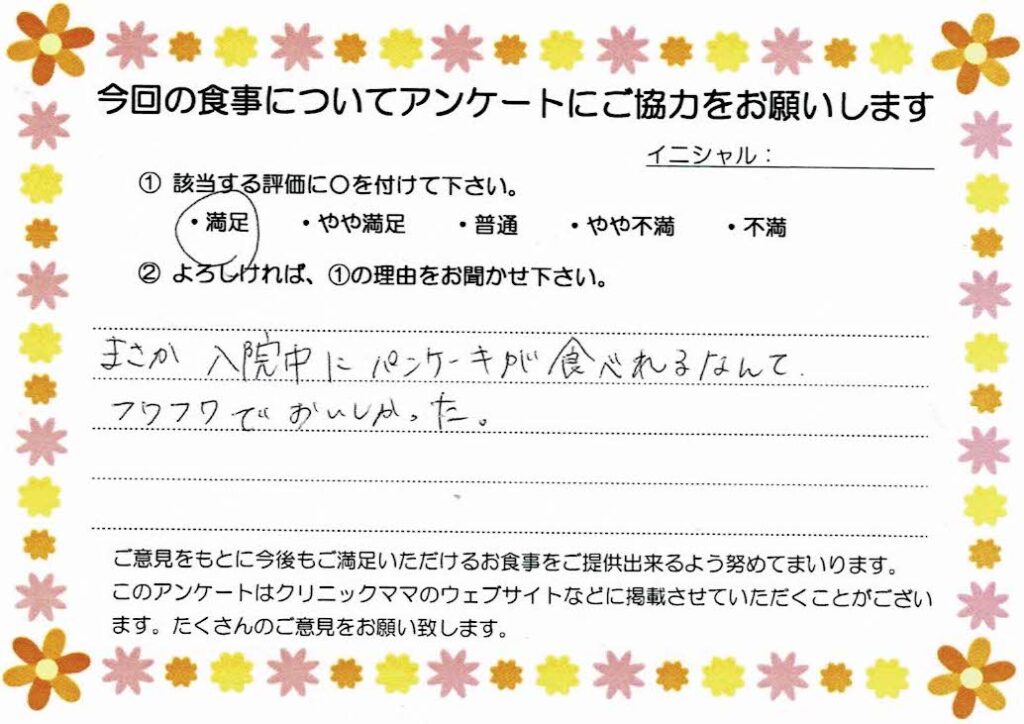 今回の食事についてアンケートにご協力をお願いします
イニシャル：
① 該当する評価に〇を付けて下さい。
・満足 ・やや満足 ・普通 ・やや不満 ・不満
② よろしければ、①の理由をお聞かせ下さい。
まさか 入院中に パンケーキが 食べれるなんて
フワフワで おいしかった。
ご意見をもとに今後もご満足いただけるお食事をご提供出来るよう努めてまいります。
このアンケートはクリニックママのウェブサイトなどに掲載させていただくことがござい
ます。たくさんのご意見をお願い致します。